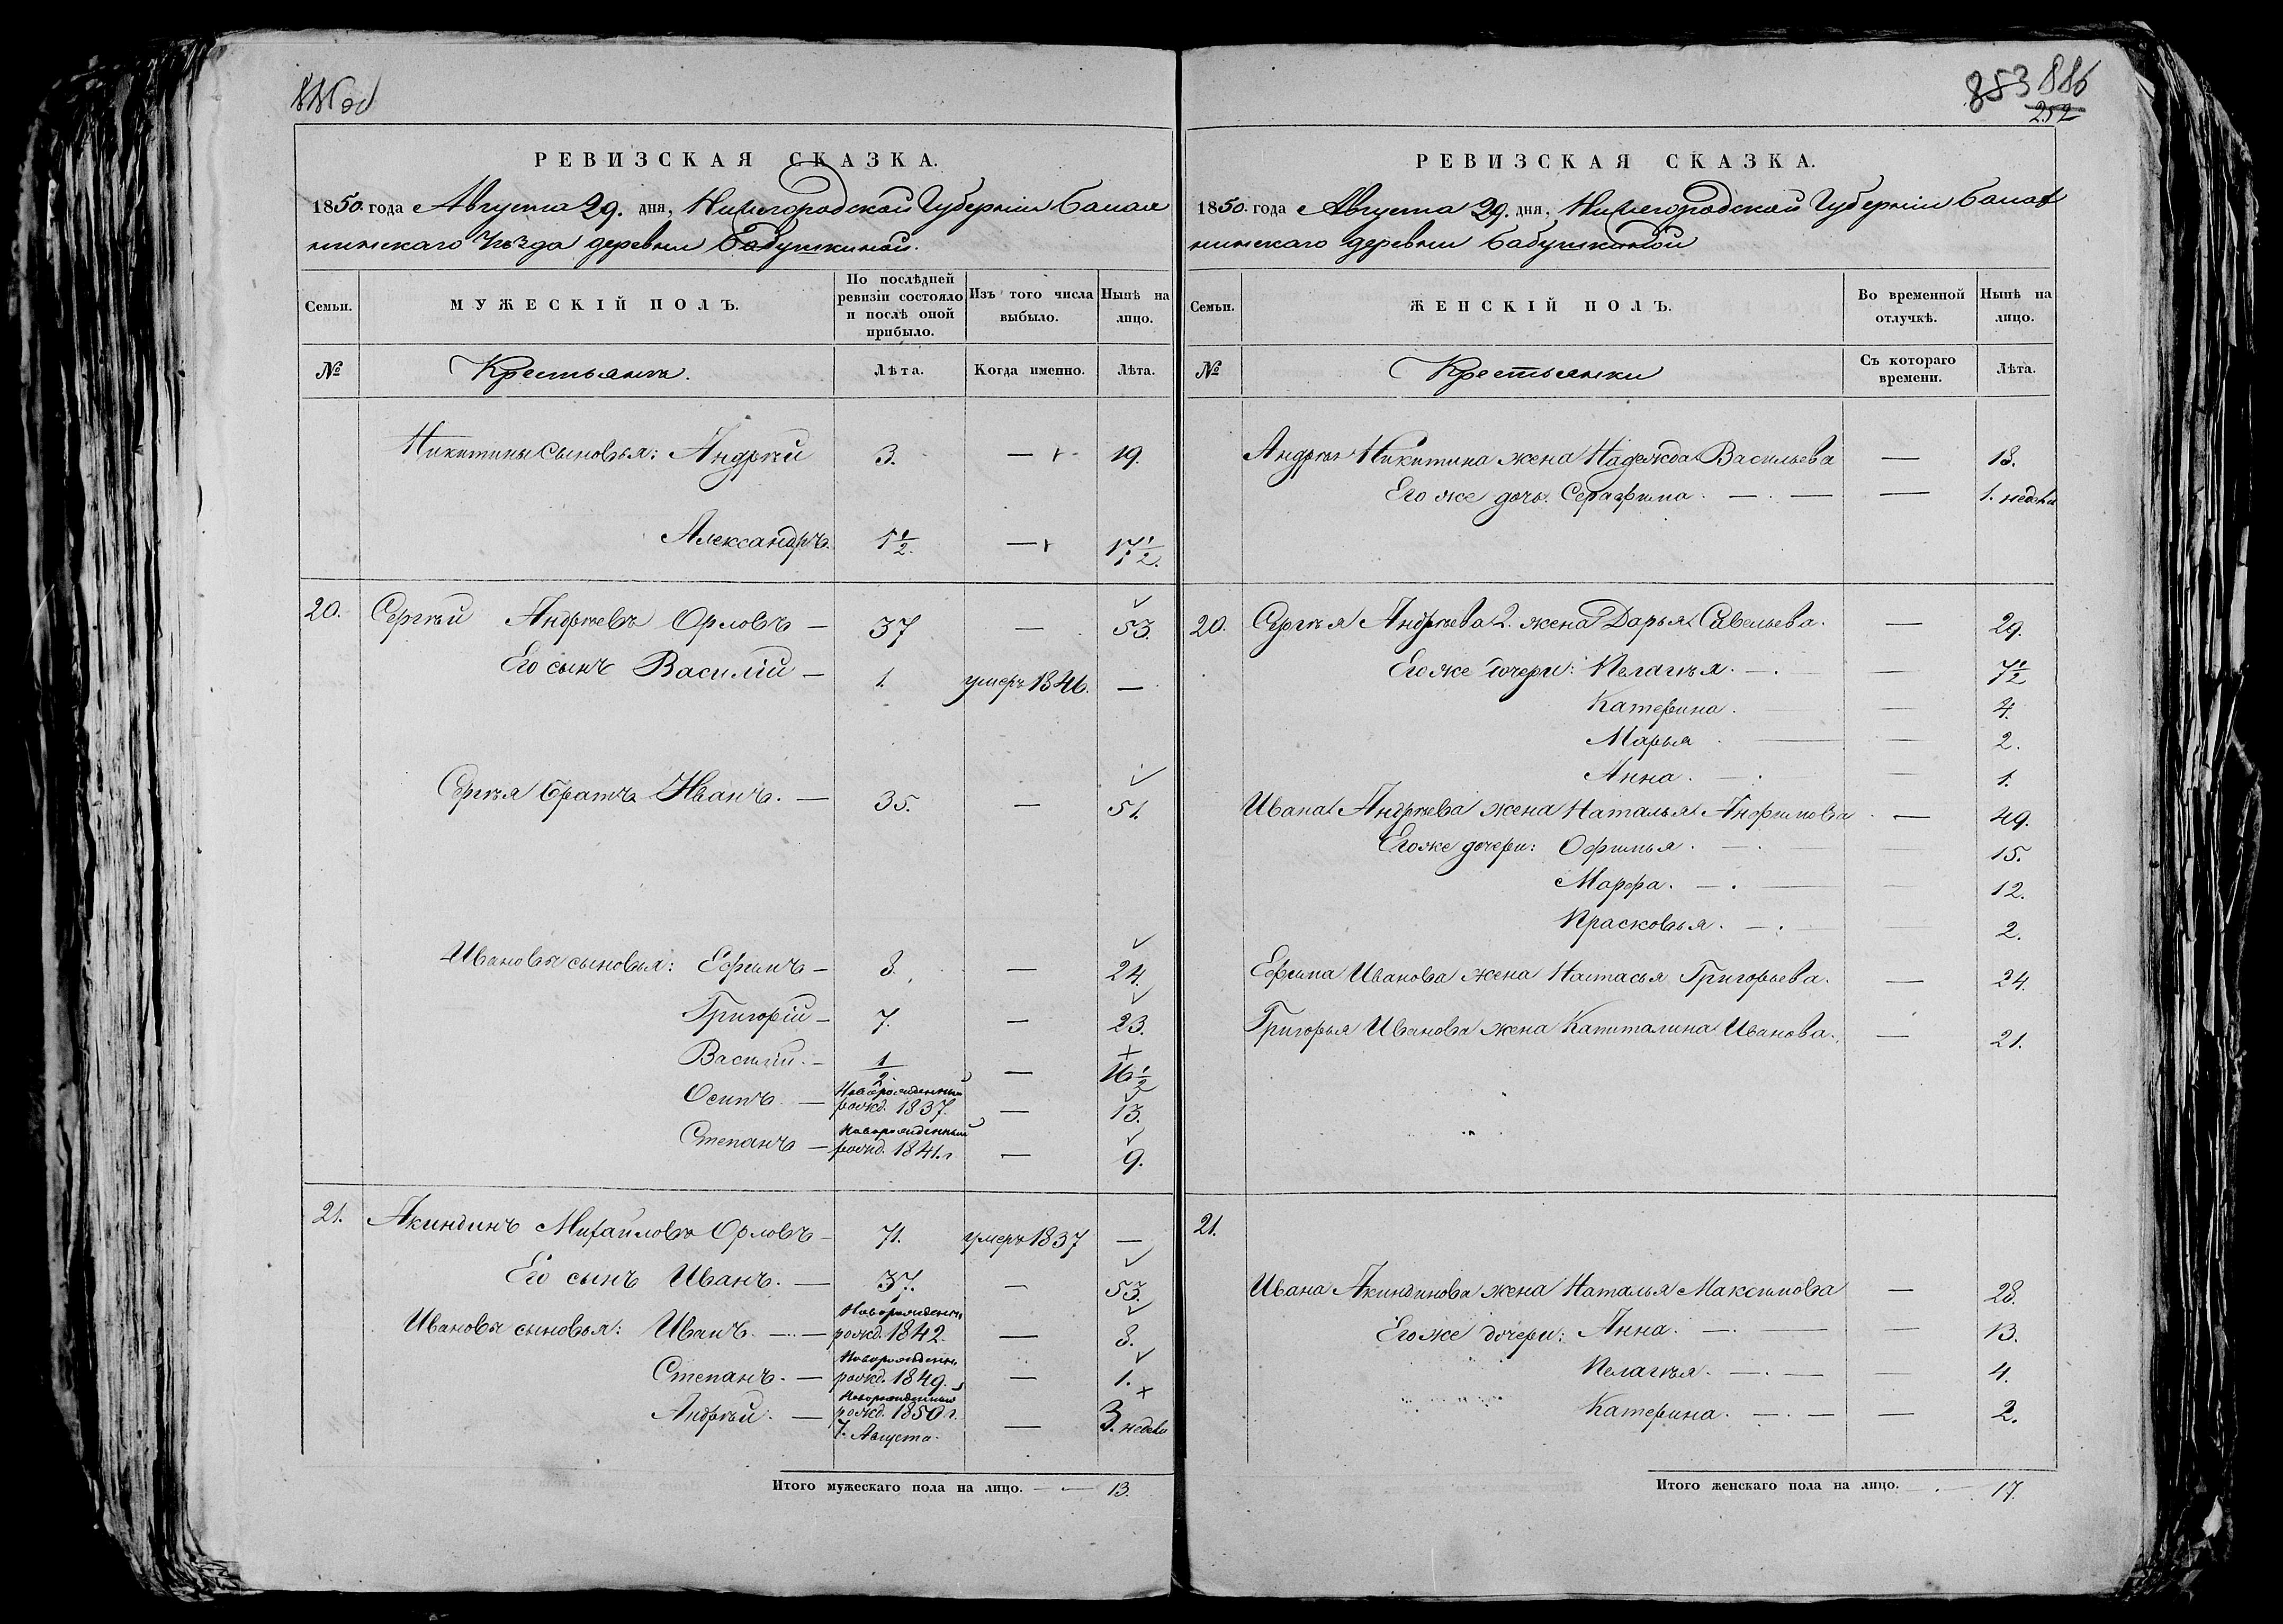 853 886
252
РЕВИЗСКАЯ СКАЗКА.
1850 года Августа 29. дня, Нижегородской Губернiи Балах
нинскаго Уѣзда деревни Бабушкиной.
Семьи.
МУЖЕСКІЙ ПОЛЪ.
По послѣдней ревизіи состояло и послѣ оной прибыло.
Изъ того числа выбыло.
Нынѣ на лицо.
№
Крестьяне.
Лѣта.
Когда именно.
Лѣта.
Никитины сыновья: Андрей 3. — 19.
Александръ. 1 1/2. — 17 1/2.
20. Сергѣй Андреевъ Орловъ — 37 — 53.
Его сынъ Василій — 1. умеръ 1846. —
Сергѣя братъ Иванъ. — 35. — 51.
Ивановы сыновья: Ефимъ — 8. — 24.
Григорій — 7. — 23.
Василій. — 1/2 — 16 1/2
Осипъ — Новорожденный
рожд. 1837. — 13.
Степанъ — Новорожденный
рожд. 1841. г — 9.
21. Акиндинъ Михайловъ Орловъ — 71. умеръ 1837 —
Его сынъ Иванъ. — 37. — 53.
Ивановы сыновья: Иванъ. — Новорожденны
рожд. 1842. — 8.
Степанъ. — Новорожденны
рожд. 1849. — 1.
Андрей. — Новорожденный
рожд. 1850 г.
7. Августа. — 3. недѣли
Итого мужескаго пола на лицо. — 13.
РЕВИЗСКАЯ СКАЗКА.
1850 года Августа 29. дня, Нижегородской Губерніи Балах
нинскаго деревни Бабушкиной
Семьи.
ЖЕНСКІЙ ПОЛЪ.
Во временной отлучкѣ.
Нынѣ на лицо.
№
Крестьянки
Съ котораго времени.
Лѣта.
Андрея Никитина жена Надежда Васильева — 18.
Его же дочь Серафима. — — 1. недѣли
20. Сергѣя Андреева 2. жена Дарья Савельева. — 29.
Его же дочери: Пелагѣя. — — 7 1/2
Катерина. — — 4.
Марья — — 2.
Анна. — — 1.
Ивана Андреева жена Наталья Анфимова. — 49.
Его же дочери: Офимья. — 15.
Марфа. — — 12.
Прасковья. — — 2.
Ефима Иванова жена Настасья Григорьева. — 24.
Григорья Иванова жена Капиталина Иванова. — 21.
21.
Ивана Акиндинова жена Наталья Максимова — 28.
Его же дочери: Анна. — — 13.
Пелагѣя. — — 4.
Катерина. — — 2.
Итого женскаго пола на лицо. — 17.